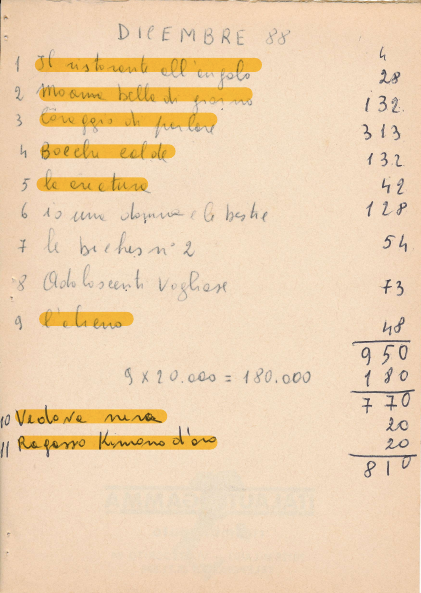 DICEMBRE 88
4
1 Il ristorante all'angolo 28
2 Moana bella di giorno 132
3 Coraggio di parlare 313
4 Bocche calde 132
5 la creatura 42
6 io una donna e le bestie 128
7 le biches n° 2 54
8 Adoloscenti Vogliose 73
9 l'alieno 48
950
9 x 20.000 = 180.000 180
770
10 Vedova nera 20
11 Ragazzo Kimono d'oro 20
810